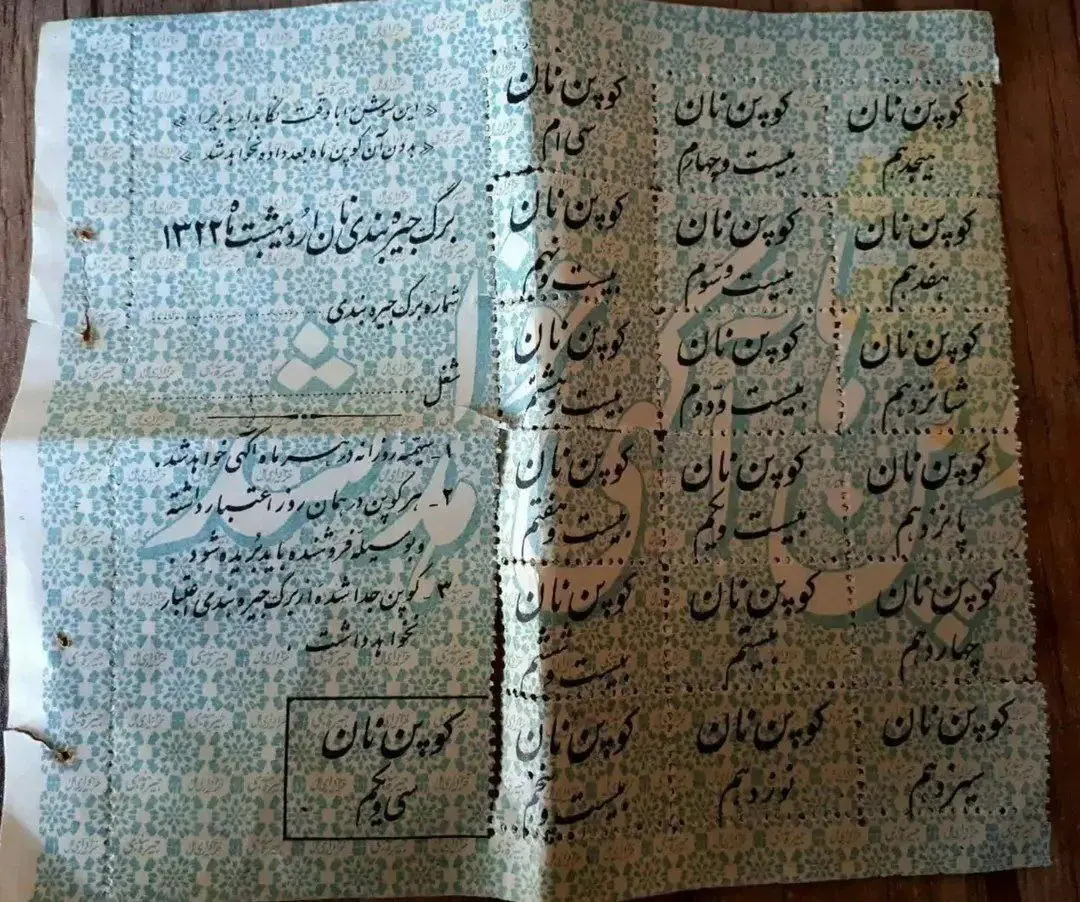 « این سوش را با دقت نگاه دارید زیرا »
« بدون آن کوپن ماه بعد داده نخواهد شد »
برگ جیره بندی نان اردیبهشت ماه ۱۳۲۲
شماره برگ جیره بندی
شغل
۱- سهمیه روزانه در هر ماه آگهی خواهد شد.
۲- هر کوپن در همان روز اعتبار داشته
و بوسیله فروشنده باید بریده شود
۳- کوپن جدا شده از برگ جیره بندی اعتبار
نخواهد داشت.
کوپن نان
سی و یکم
کوپن نان
هیجدهم
کوپن نان
بیست و چهارم
کوپن نان
سی ام
کوپن نان
هفدهم
کوپن نان
بیست و سوم
کوپن نان
بیست و نهم
کوپن نان
شانزدهم
کوپن نان
بیست و دوم
کوپن نان
بیست و هشتم
کوپن نان
پانزدهم
کوپن نان
بیست و یکم
کوپن نان
بیست و هفتم
کوپن نان
چهاردهم
کوپن نان
بیستم
کوپن نان
بیست و ششم
کوپن نان
سیزدهم
کوپن نان
نوزدهم
کوپن نان
بیست و پنجم